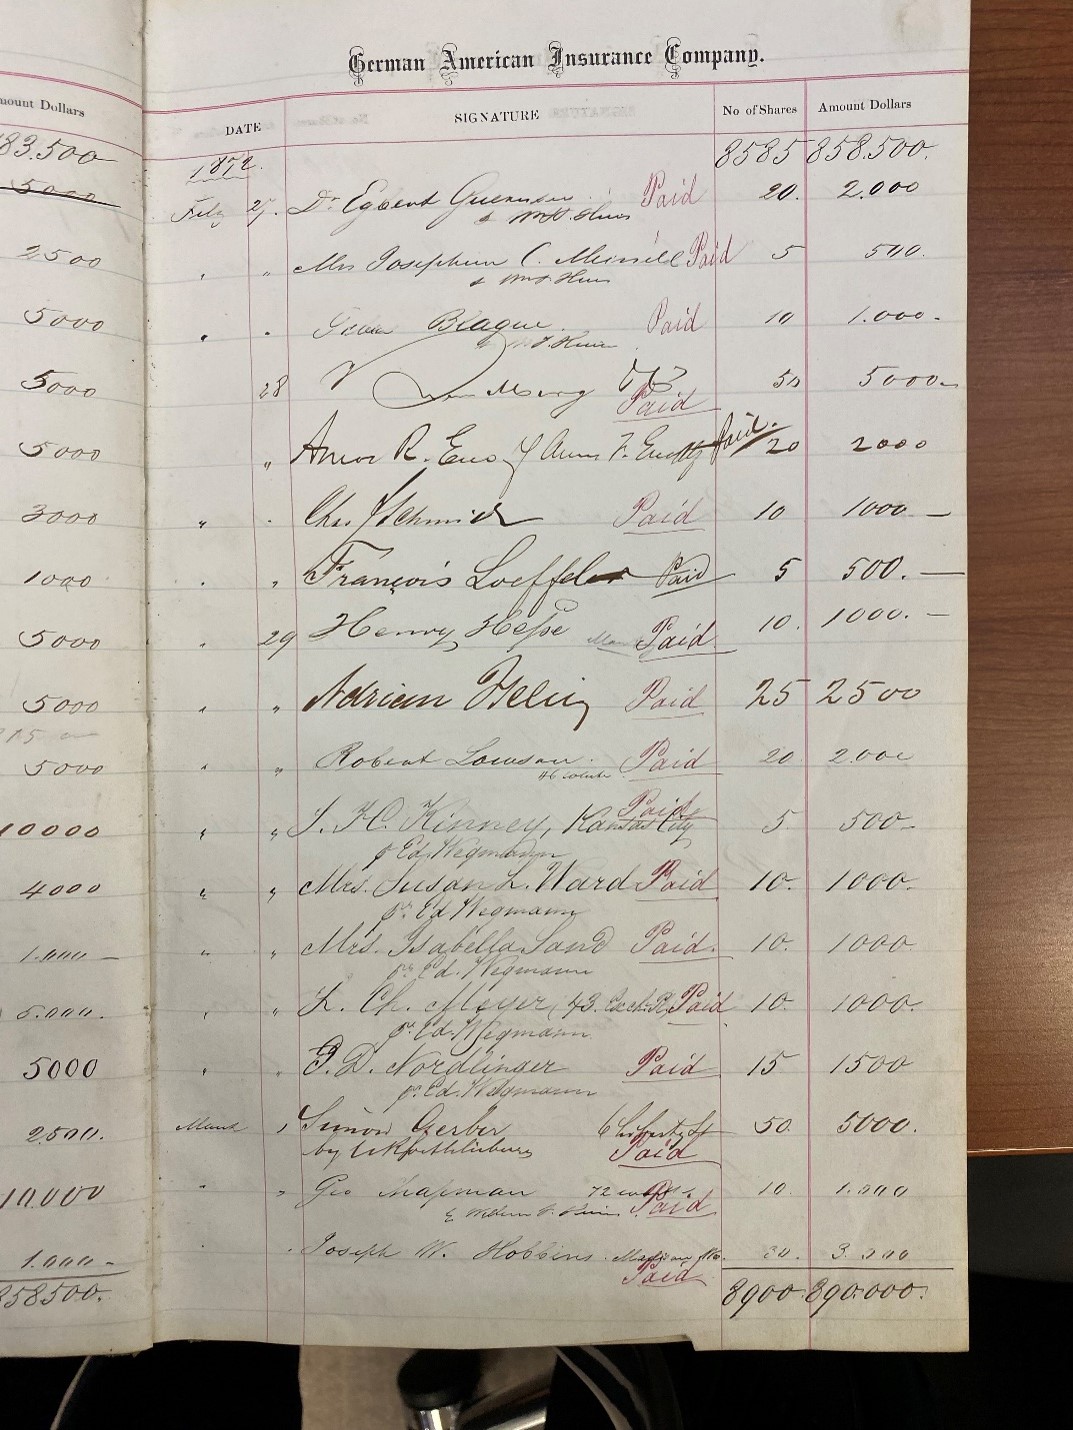 German American Insurance Company.
mount Dollars
DATE SIGNATURE No of Shares Amount Dollars
83.500
1872. 8585 858.500.
5000
Feby 27. Dr Egbert Guernsey Paid 20. 2.000
2500
" " Mrs Josephine C. Paid 5 500.
5000
" " Paid 10 1.000-
5000
28 50 5000-
Paid
5000
" Amos R. Eno Paid. 20 2000
3000
" " Chas Schmidt Paid 10 1000 —
1000
" " François Loeffler Paid 5 500. —
5000
" 29 Henry Hesse Paid 10. 1000. —
5000
" " Adrian Iselin Paid 25 2500
5000
" " Robert Lowson. Paid 20 2.000
10000
" " Kinney, Kansas City Paid 5 500-
pr Ed. Wegmann
4000
" " Mrs. Susan L. Ward Paid 10. 1000.
pr Ed. Wegmann
1.000 —
" " Mrs. Isabella Sand Paid. 10. 1000
pr Ed. Wegmann
5.000.
" " L. Ch. Meyer (43. Paid 10. 1000.
pr Ed. Wegmann
5000
" " P. D. Nordlinger Paid 15 1500
pr. Ed. Wegmann
2.500.
March " Simon Gerber 6 Liberty St 50. 5000.
by
Paid
10.000
" " Geo Chapman 72 Paid 10. 1.000
1.000 -
" " Joseph W. Hobbins. Madison Wis. 30. 3.000
Paid
858500.
8900 890.000.